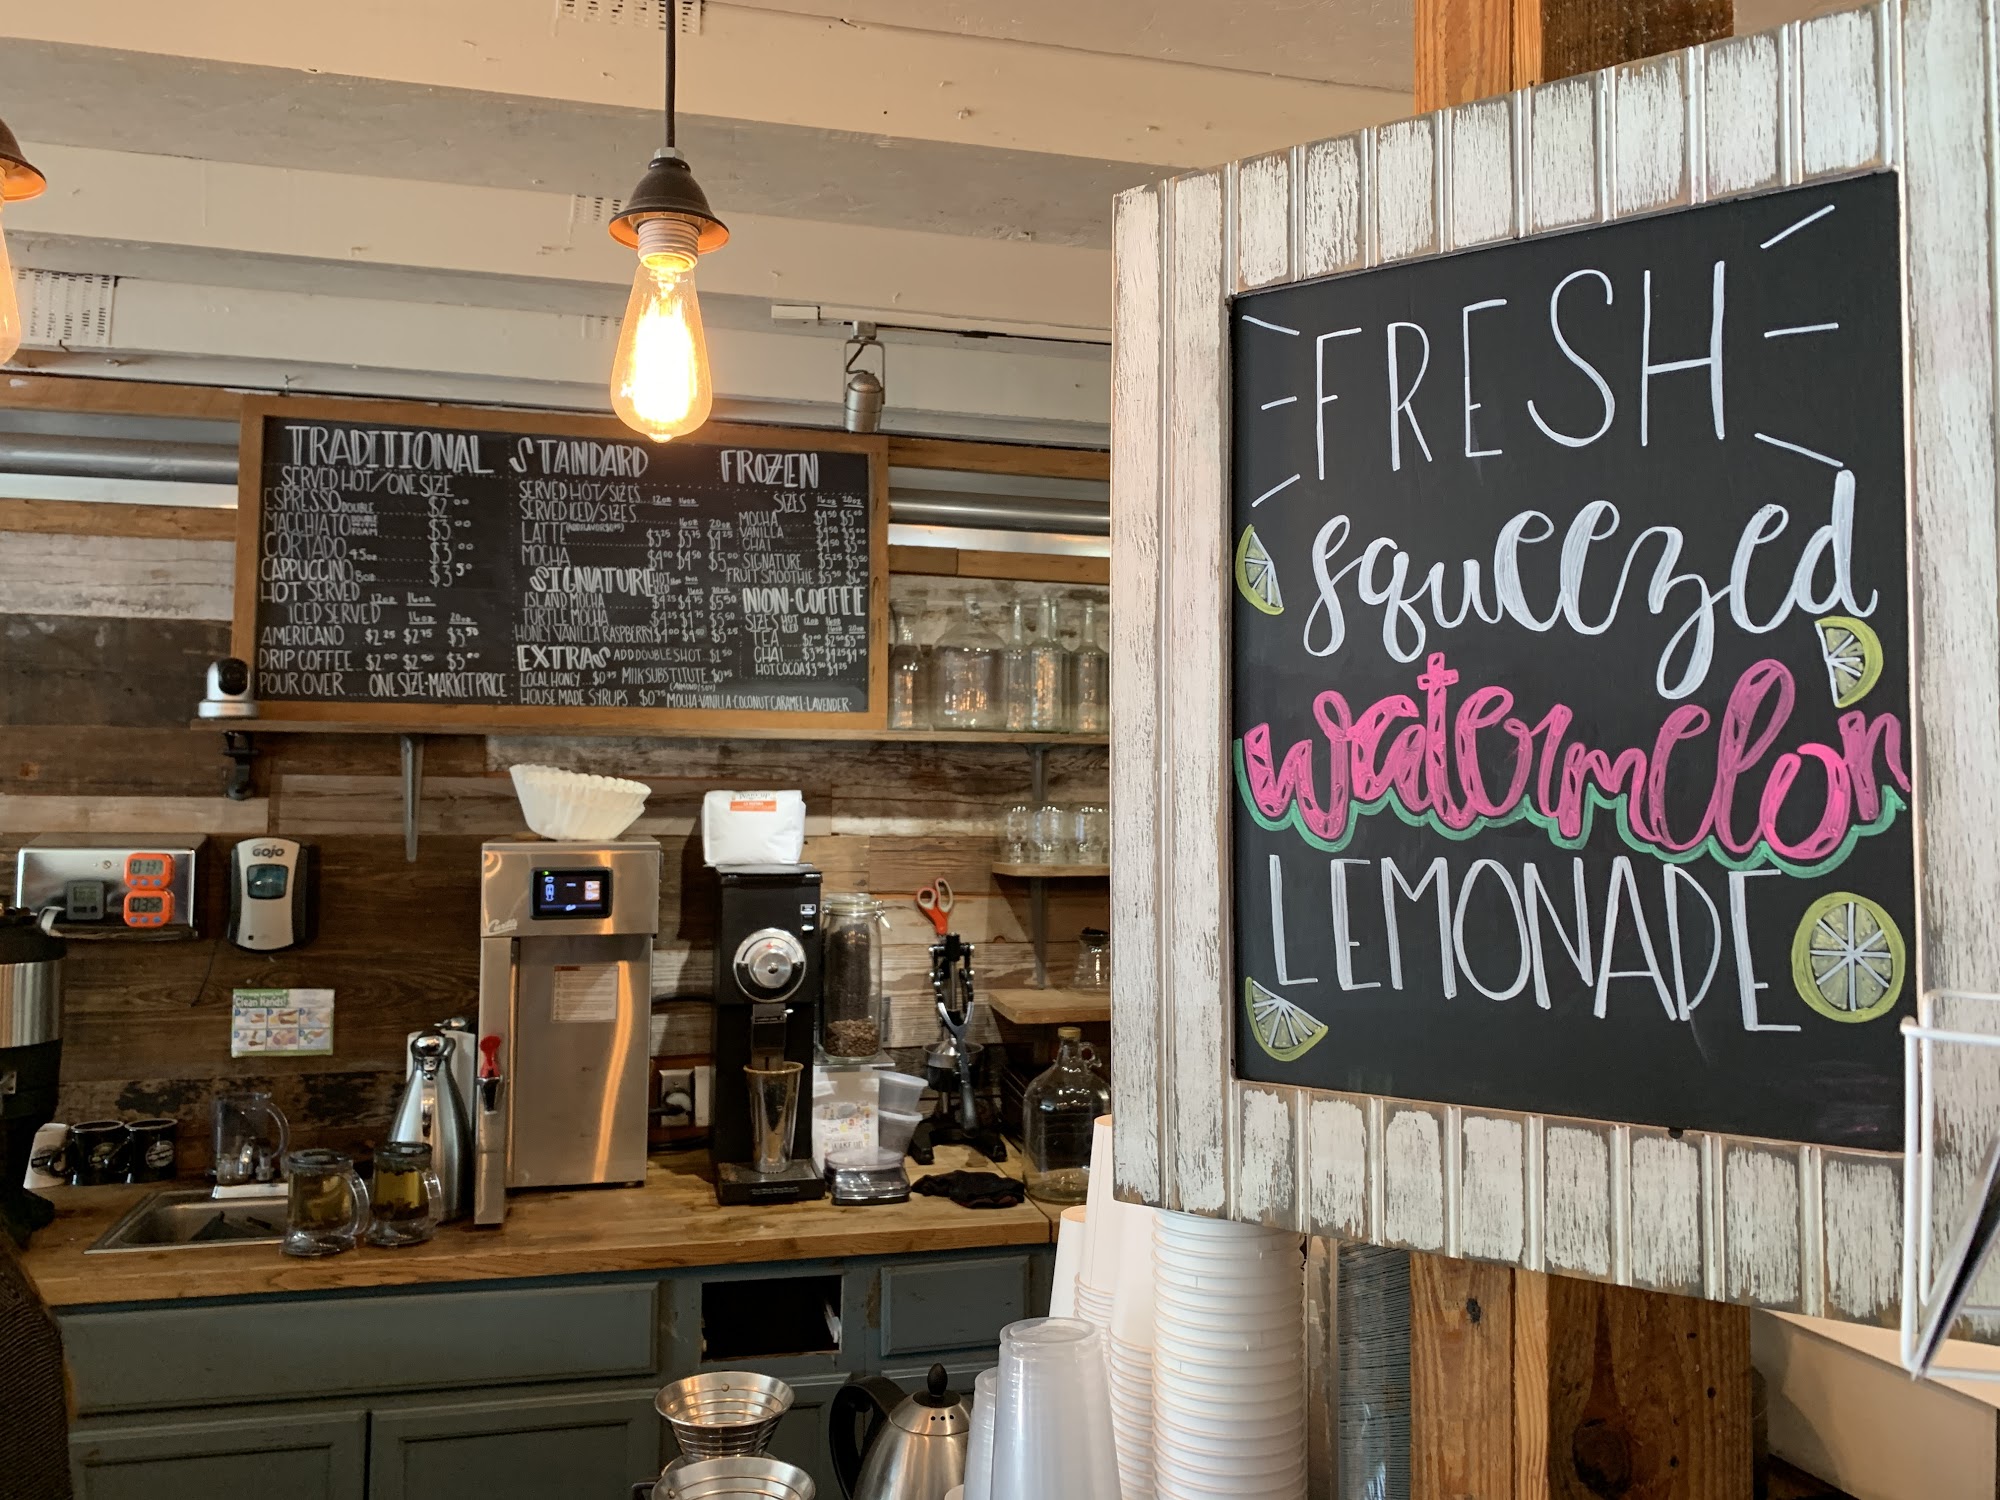 TRADITIONAL
SERVED HOT/ONE SIZE
ESPRESSO DOUBLE $2.00
MACCHIATO DOUBLE FOAM $3.00
CORTADO 4.5oz $3.00
CAPPUCCINO 8oz $3.50
HOT SERVED 12oz 16oz
ICED SERVED 16oz 20oz
AMERICANO $2.25 $2.75 $3.50
DRIP COFFEE $2.00 $2.50 $3.00
POUR OVER ONE SIZE-MARKET PRICE
STANDARD
SERVED HOT/SIZES 12oz 16oz
SERVED ICED/SIZES 16oz 20oz
LATTE $3.25 $3.75 $4.25
MOCHA $4.00 $4.50 $5.00
SIGNATURE HOT 12oz 16oz
ICED
ISLAND MOCHA $4.25 $4.75 $5.50
TURTLE MOCHA $4.25 $4.75 $5.50
HONEY VANILLA RASPBERRY $4.00 $4.50 $5.25
EXTRAS ADD DOUBLE SHOT $1.50
LOCAL HONEY $0.75 MILK SUBSTITUTE $0.75
(ALMOND/SOY)
HOUSE MADE SYRUPS $0.75 MOCHA-VANILLA-COCONUT CARAMEL-LAVENDER
FROZEN
SIZES 16oz 20oz
MOCHA $4.50 $5.00
VANILLA $4.50 $5.00
CHAI $4.50 $5.00
SIGNATURE $5.25 $5.50
FRUIT SMOOTHIE $5.50
NON-COFFEE
SIZES HOT 12oz 16oz
ICED 16oz 20oz
TEA $2.00 $2.50 $3.00
CHAI $3.75 $4.25 $4.75
HOT COCOA $3.50 $4.25
FRESH
squeezed
watermelon
LEMONADE
GOJO
Clean Hands!
Curtis